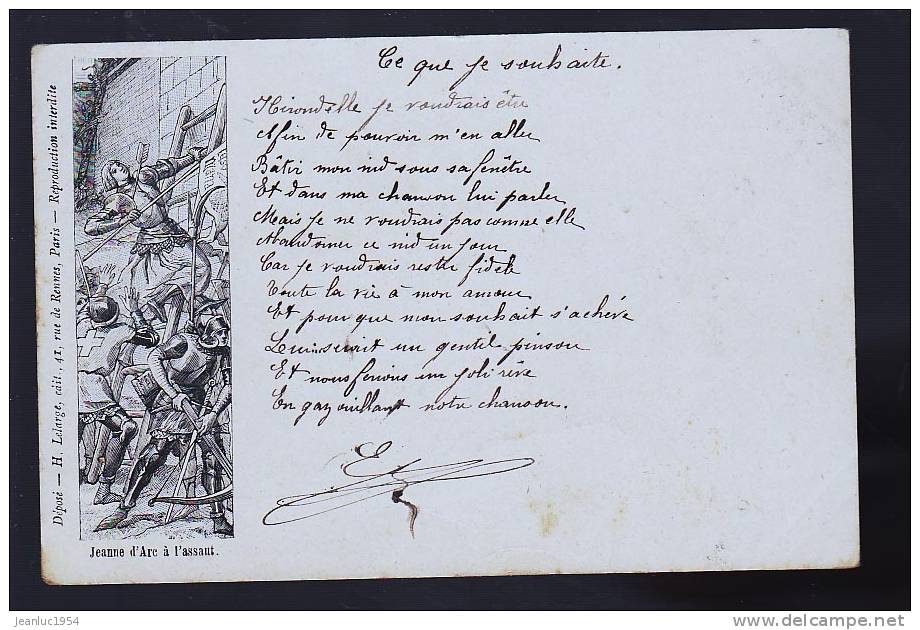 Ce que je souhaite.
Hirondelle je voudrais être
Afin de pouvoir m'en aller
Bâtir mon nid sous sa fenêtre
Et dans ma chanson lui parler
Mais je ne voudrais pas comme elle
Abandonner ce nid un jour
Car je voudrais rester fidèle
Toute la vie à mon amour
Et pour que mon souhait s'achève
Lui serait un gentil pinson
Et nous ferions un joli rêve
En gazouillant notre chanson.
Déposé — H. Lelarge, édit., 41, rue de Rennes, Paris — Reproduction interdite
Jeanne d'Arc à l'assaut.
jeanluc1954
delcampe.net